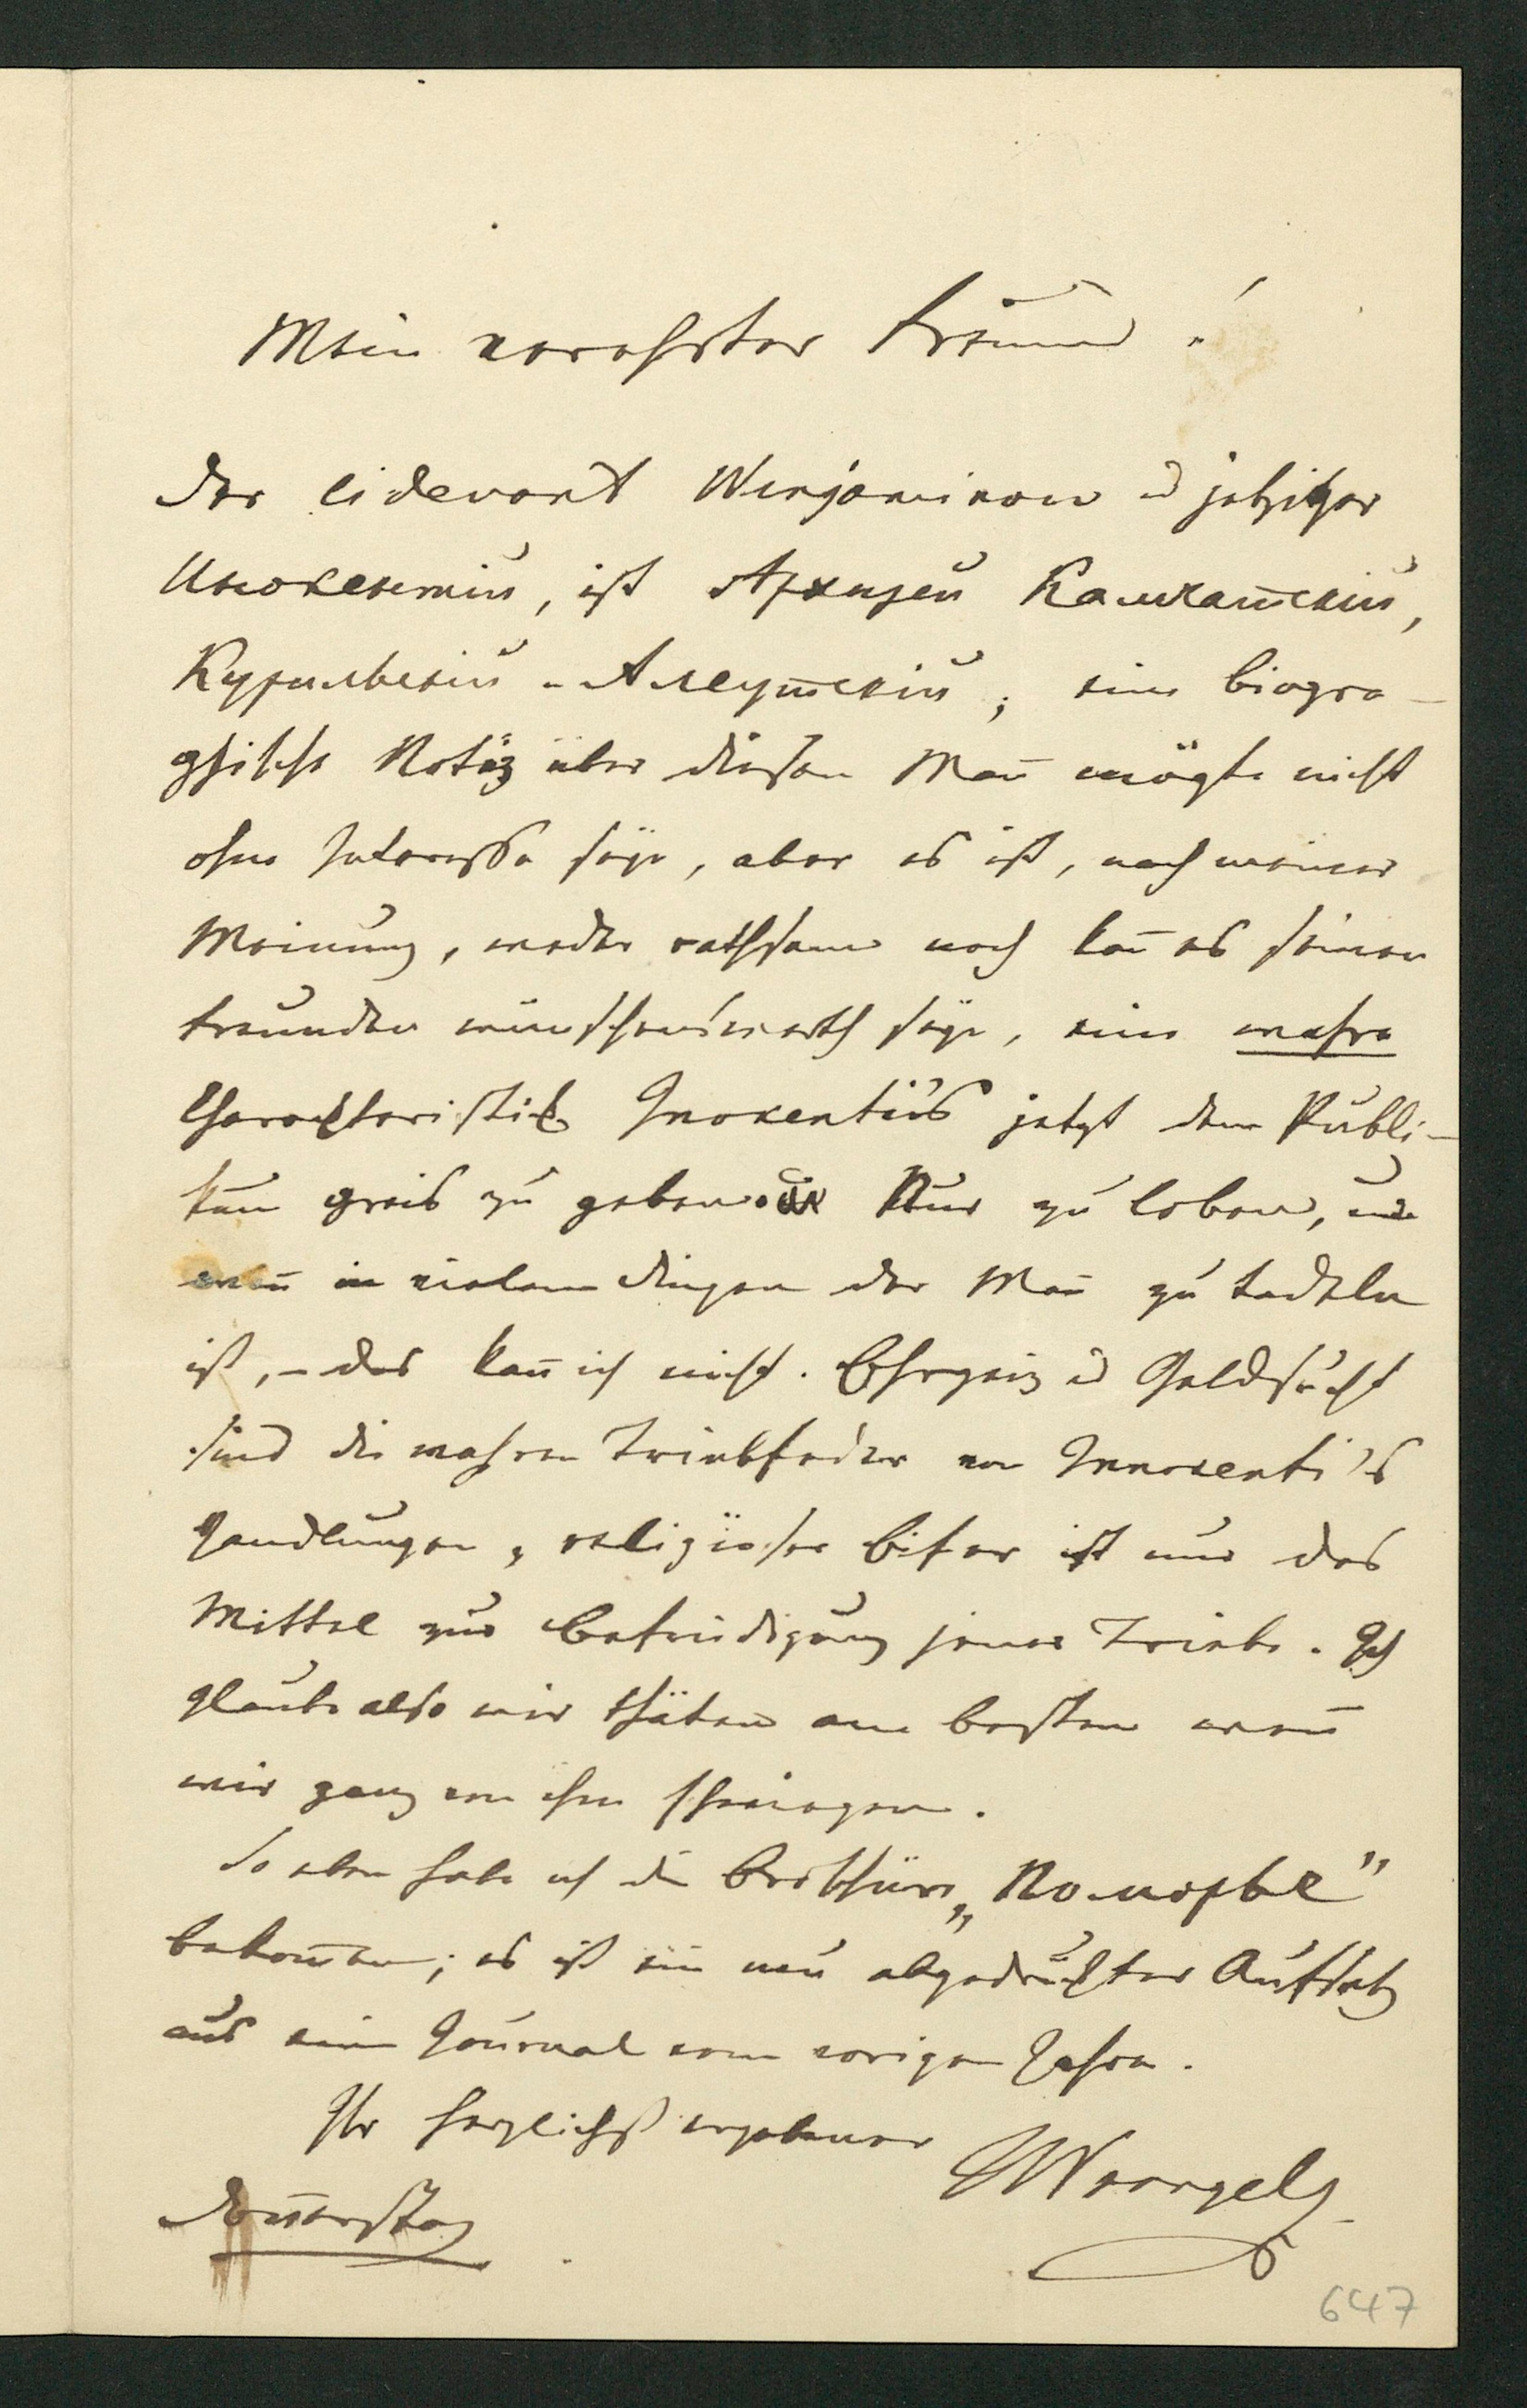 Mein verehrter Freund!
Der cidevant Wenjaminow u jetziger
Инокентий, ist Архирей Камчатский,
Курильский и Алеутский; eine biogra-
phische Notiz über diesen Man̄ mögte nicht
ohne Interesse seyn, aber es ist, nach meiner
Meinung, weder rathsam noch kan̄ es seinen
Freunden wünschenswerth seyn, eine wahre
Charackteristick Inokentiïs jetzt dem Publi-
kum preis zu geben. Nur zu loben, und
wen̄ in vielen Dingen der Man̄ zu tadeln
ist, – das kan̄ ich nicht. Ehrgeiz u Geldsucht
sind die wahren Triebfeder von Innokenti's
Handlungen, religiöser Eifer ist nur das
Mittel zur Befriedigung jener Triebe. Ich
glaube also wir thäten am besten wen̄
wir ganz von ihm schwiegen.
So eben habe ich die Broschüre „Поморье"
bekom̄en; es ist ein neu abgedruckter Aufsatz
aus einem Journal vom vorigen Jahre.
Ihr herzlichst ergebener
Wrangell
Don̄erstag
647